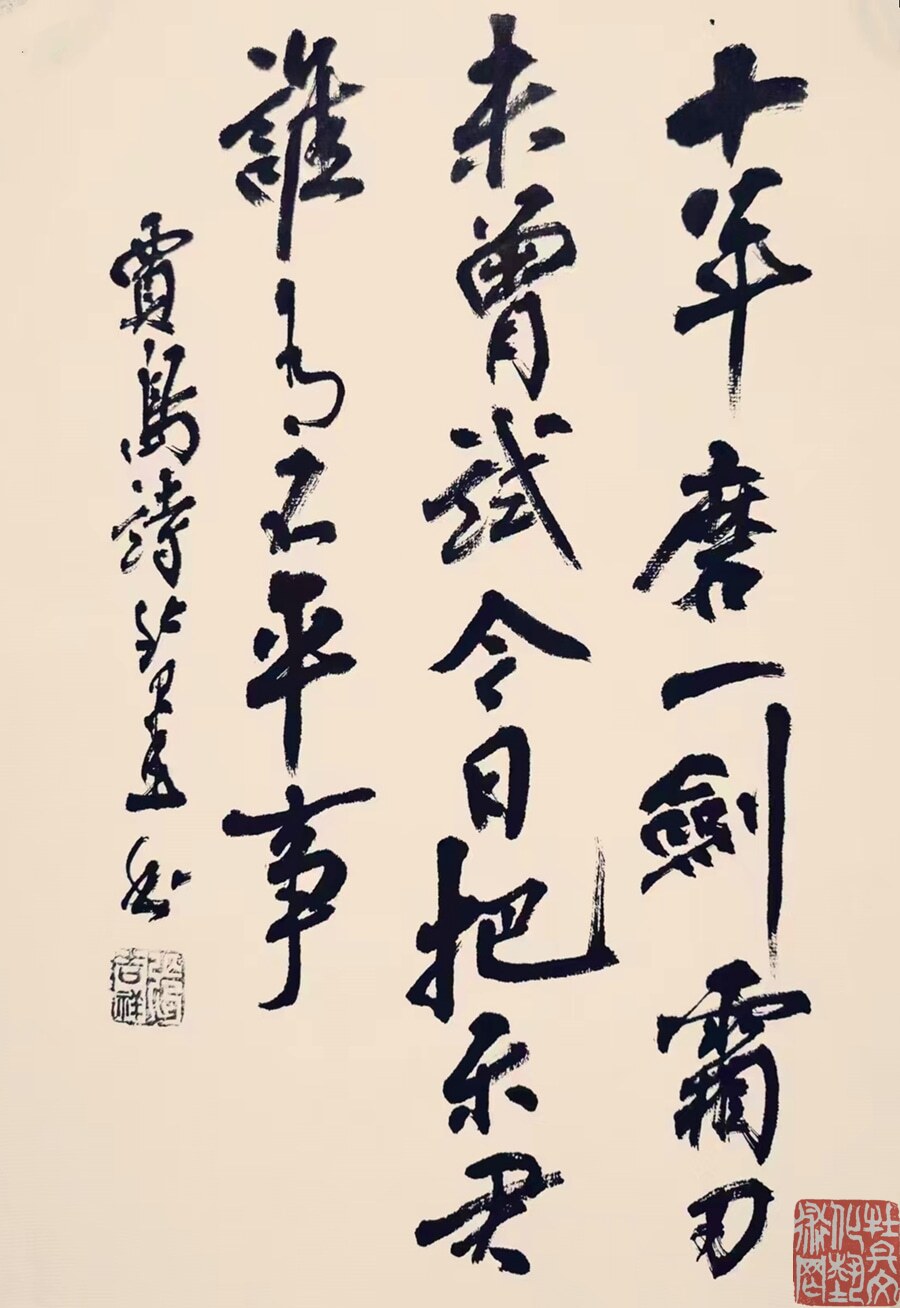 十年磨一劍霜刃
未曾試今日把示君
誰爲不平事
賈島詩
吉祥